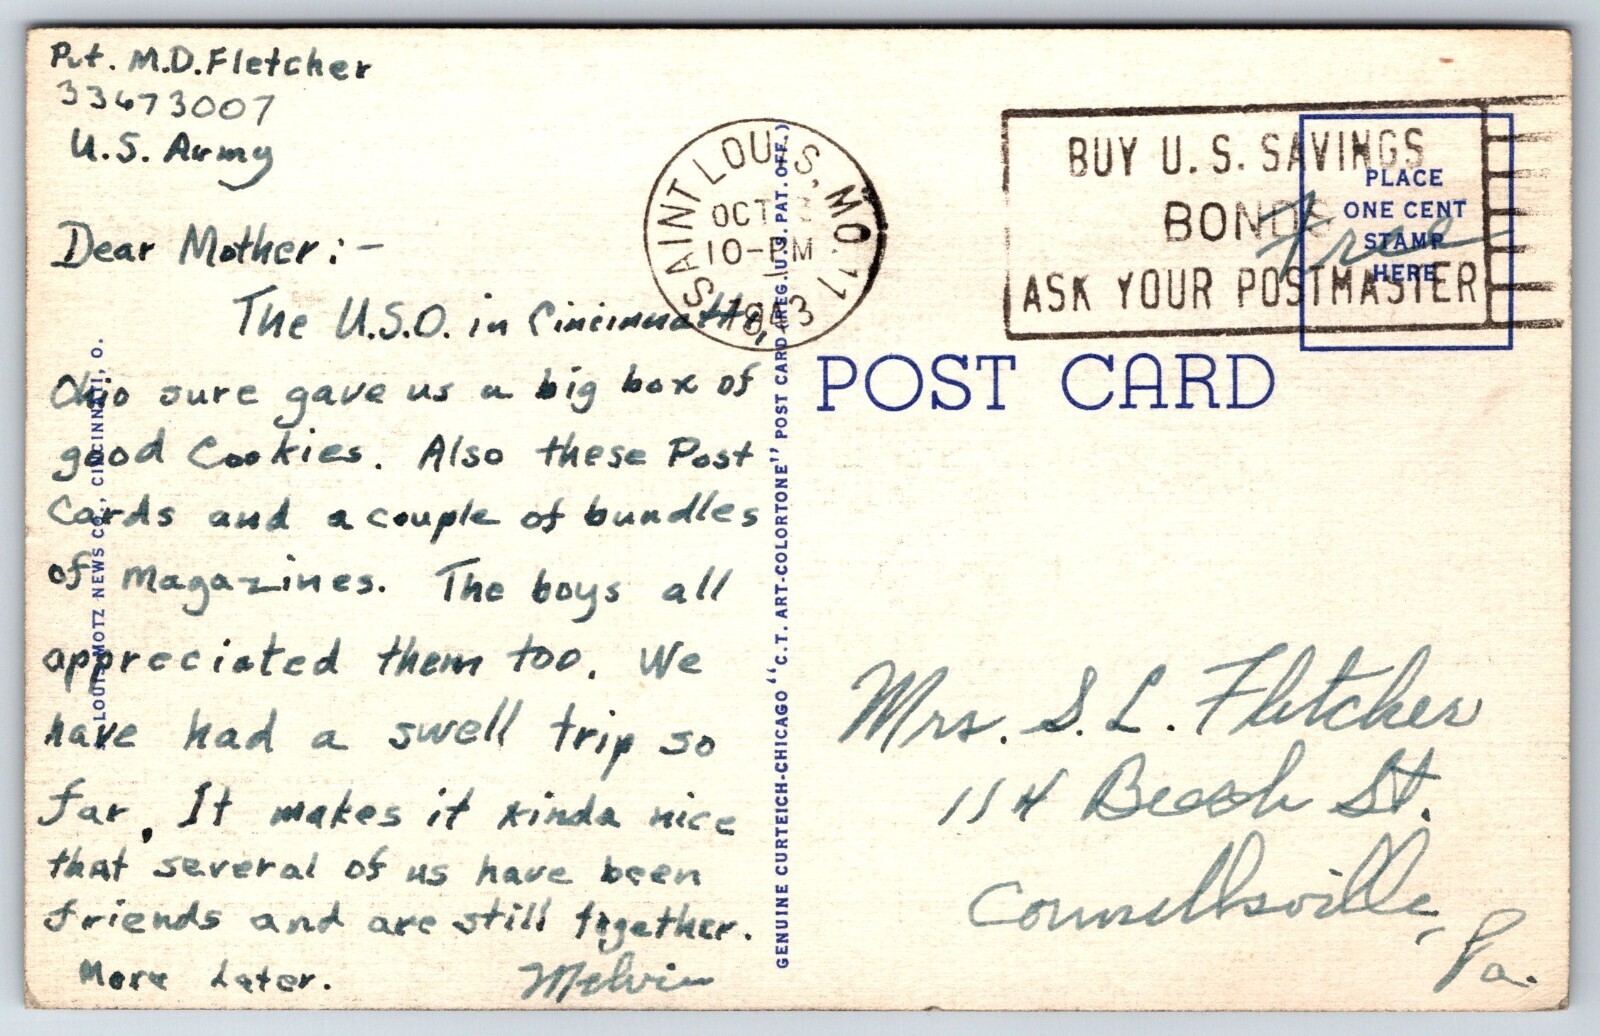 Pvt. M.D. Fletcher
33473007
U.S. Army
Dear Mother:-
The U.S.O. in Cincinnatti,
Ohio sure gave us a big box of
good Cookies. Also these Post
Cards and a couple of bundles
of magazines. The boys all
appreciated them too. We
have had a swell trip so
far. It makes it kinda nice
that several of us have been
friends and are still together.
More Later. Melvin
LOUIS MOTZ NEWS CO., CINCINNATI, O.
GENUINE CURTEICH-CHICAGO "C.T. ART-COLORTONE" POST CARD (REG. U.S. PAT. OFF.)
SAINT LOUIS, MO. 11
OCT
10-PM
1943
BUY U.S. SAVINGS
BONDS
ASK YOUR POSTMASTER
PLACE
ONE CENT
STAMP
HERE
Free
POST CARD
Mrs. S. L. Fletcher
114 Beech St.
Connellsville,
Pa.